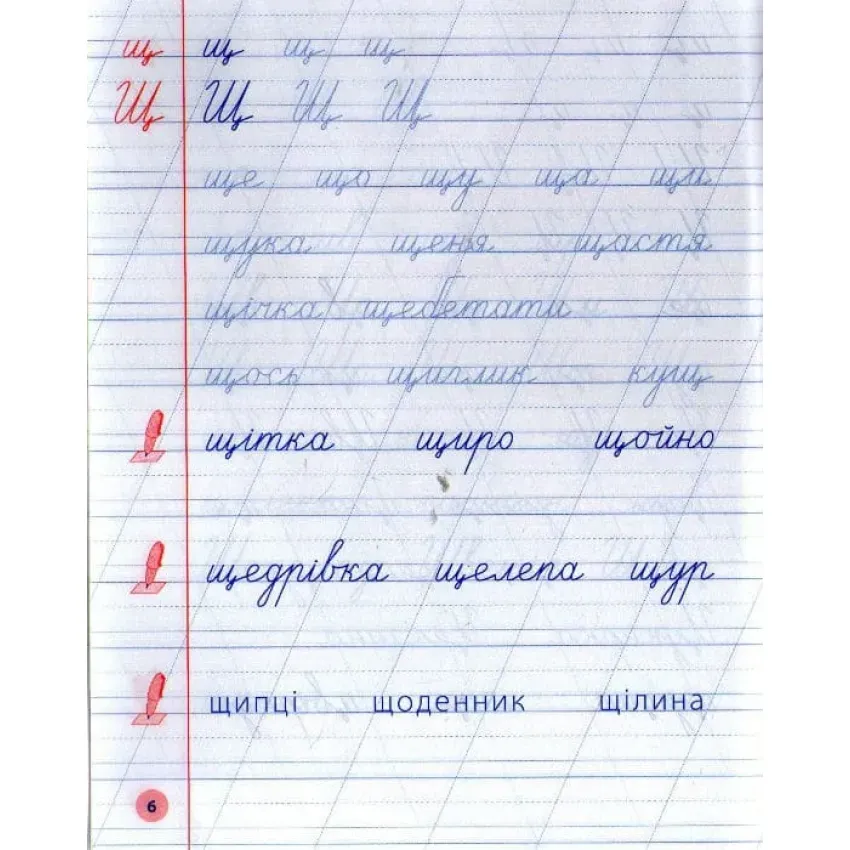 щ щ щ щ
Щ Щ Щ Щ
ще що щу ща щи
щука щеня щастя
щічка щебетати
щось щиглик кущ
щітка щиро щойно
щедрівка щелепа щур
щипці щоденник щілина
6